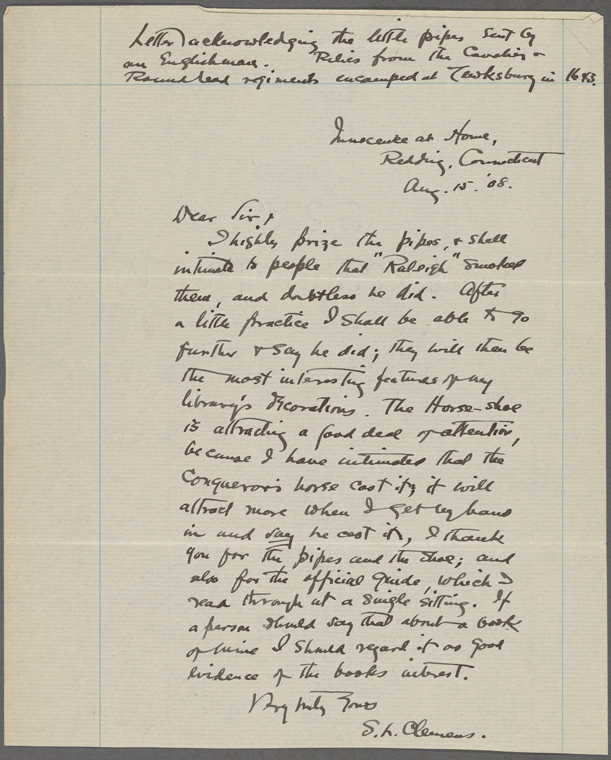 Letter acknowledging the little pipes sent by
an Englishman. Relics from the Cavalier &
Roundhead regiments encamped at Tewksbury in 1643.
Innocence at Home,
Redding, Connecticut
Aug. 15. '08.
Dear Sir:
I highly prize the pipes, & shall
intimate to people that "Raleigh" smoked
them, and doubtless he did. After
a little practice I shall be able to go
further & say he did; they will then be
the most interesting features of my
library's decorations. The Horse-shoe
is attracting a good deal of attention,
because I have intimated that the
Conqueror's horse cast it; it will
attract more when I get my hand
in and say he cast it, I thank
you for the pipes and the shoe; and
also for the official guide, which I
read through at a single sitting. If
a person should say that about a book
of mine I should regard it as good
evidence of the books interest.
Very truly Yours
S. L. Clemens.